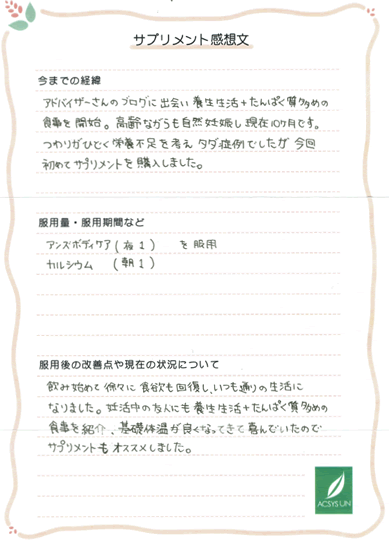 サプリメント感想文
今までの経緯
アドバイザーさんのブログに出会い養生生活+たんぱく質多めの
食事を開始。高齢ながらも自然妊娠し現在10ヶ月です。
つわりがひどく栄養不足を考えタダ症例でしたが今回
初めてサプリメントを購入しました。
服用量・服用期間など
アンズボディケア(夜1) を服用
カルシウム (朝1)
服用後の改善点や現在の状況について
飲み始めて徐々に食欲も回復し、いつも通りの生活に
なりました。妊活中の友人にも養生生活+たんぱく質多めの
食事を紹介、基礎体温が良くなってきて喜んでいたので
サプリメントもオススメしました。
ACSYS UN